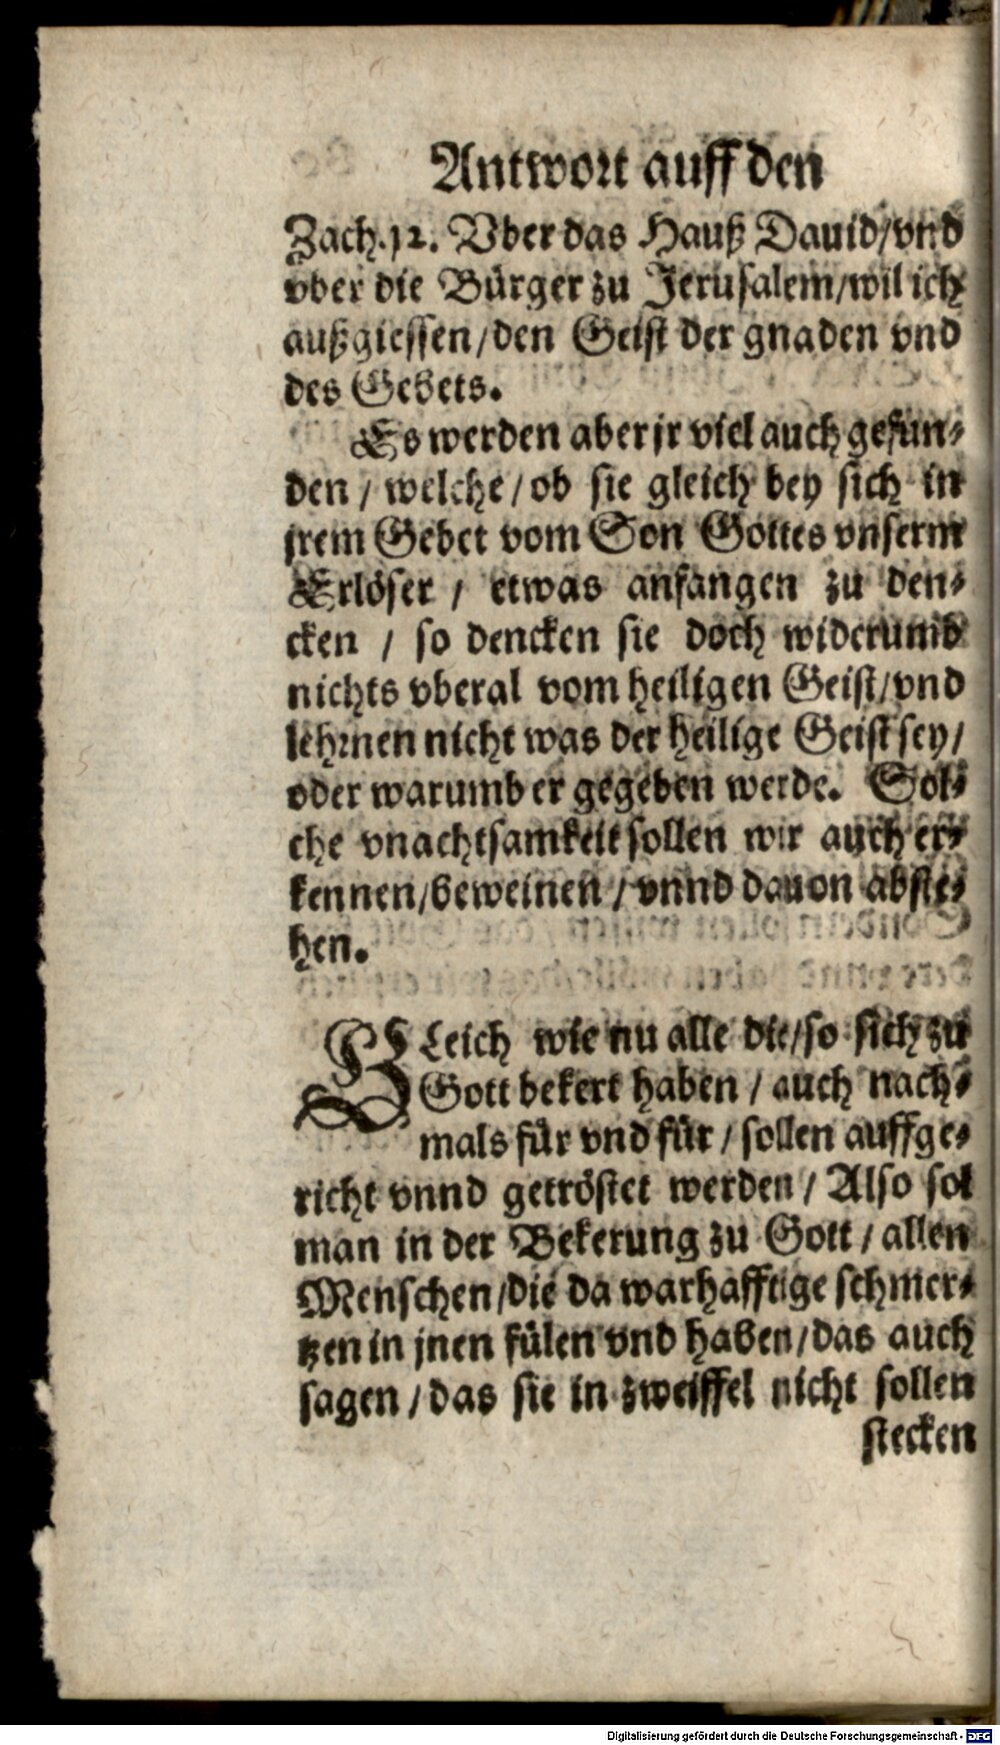 Antwort auff den
Zach. 12. Vber das Hauß Dauid/vnd
vber die Bürger zu Jerusalem/wil ich
außgiessen/den Geist der gnaden vnd
des Gebets.
Es werden aber jr viel auch gefun-
den / welche / ob sie gleich bey sich in
jrem Gebet vom Son Gottes vnserm
Erlöser / etwas anfangen zu den-
cken / so dencken sie doch widerumb
nichts vberal vom heiligen Geist/vnd
lehrnen nicht was der heilige Geist sey/
oder warumb er gegeben werde. Sol-
che vnachtsamkeit sollen wir auch er-
kennen/beweinen / vnnd dauon abste-
hen.
GLeich wie nu alle die/so sich zu
Gott bekert haben / auch nach-
mals für vnd für / sollen auffge-
richt vnnd getröstet werden / Also sol
man in der Bekerung zu Gott / allen
Menschen/die da warhafftige schmer-
tzen in jnen fülen vnd haben/das auch
sagen / das sie in zweiffel nicht sollen
stecken
Digitalisierung gefördert durch die Deutsche Forschungsgemeinschaft - DFG